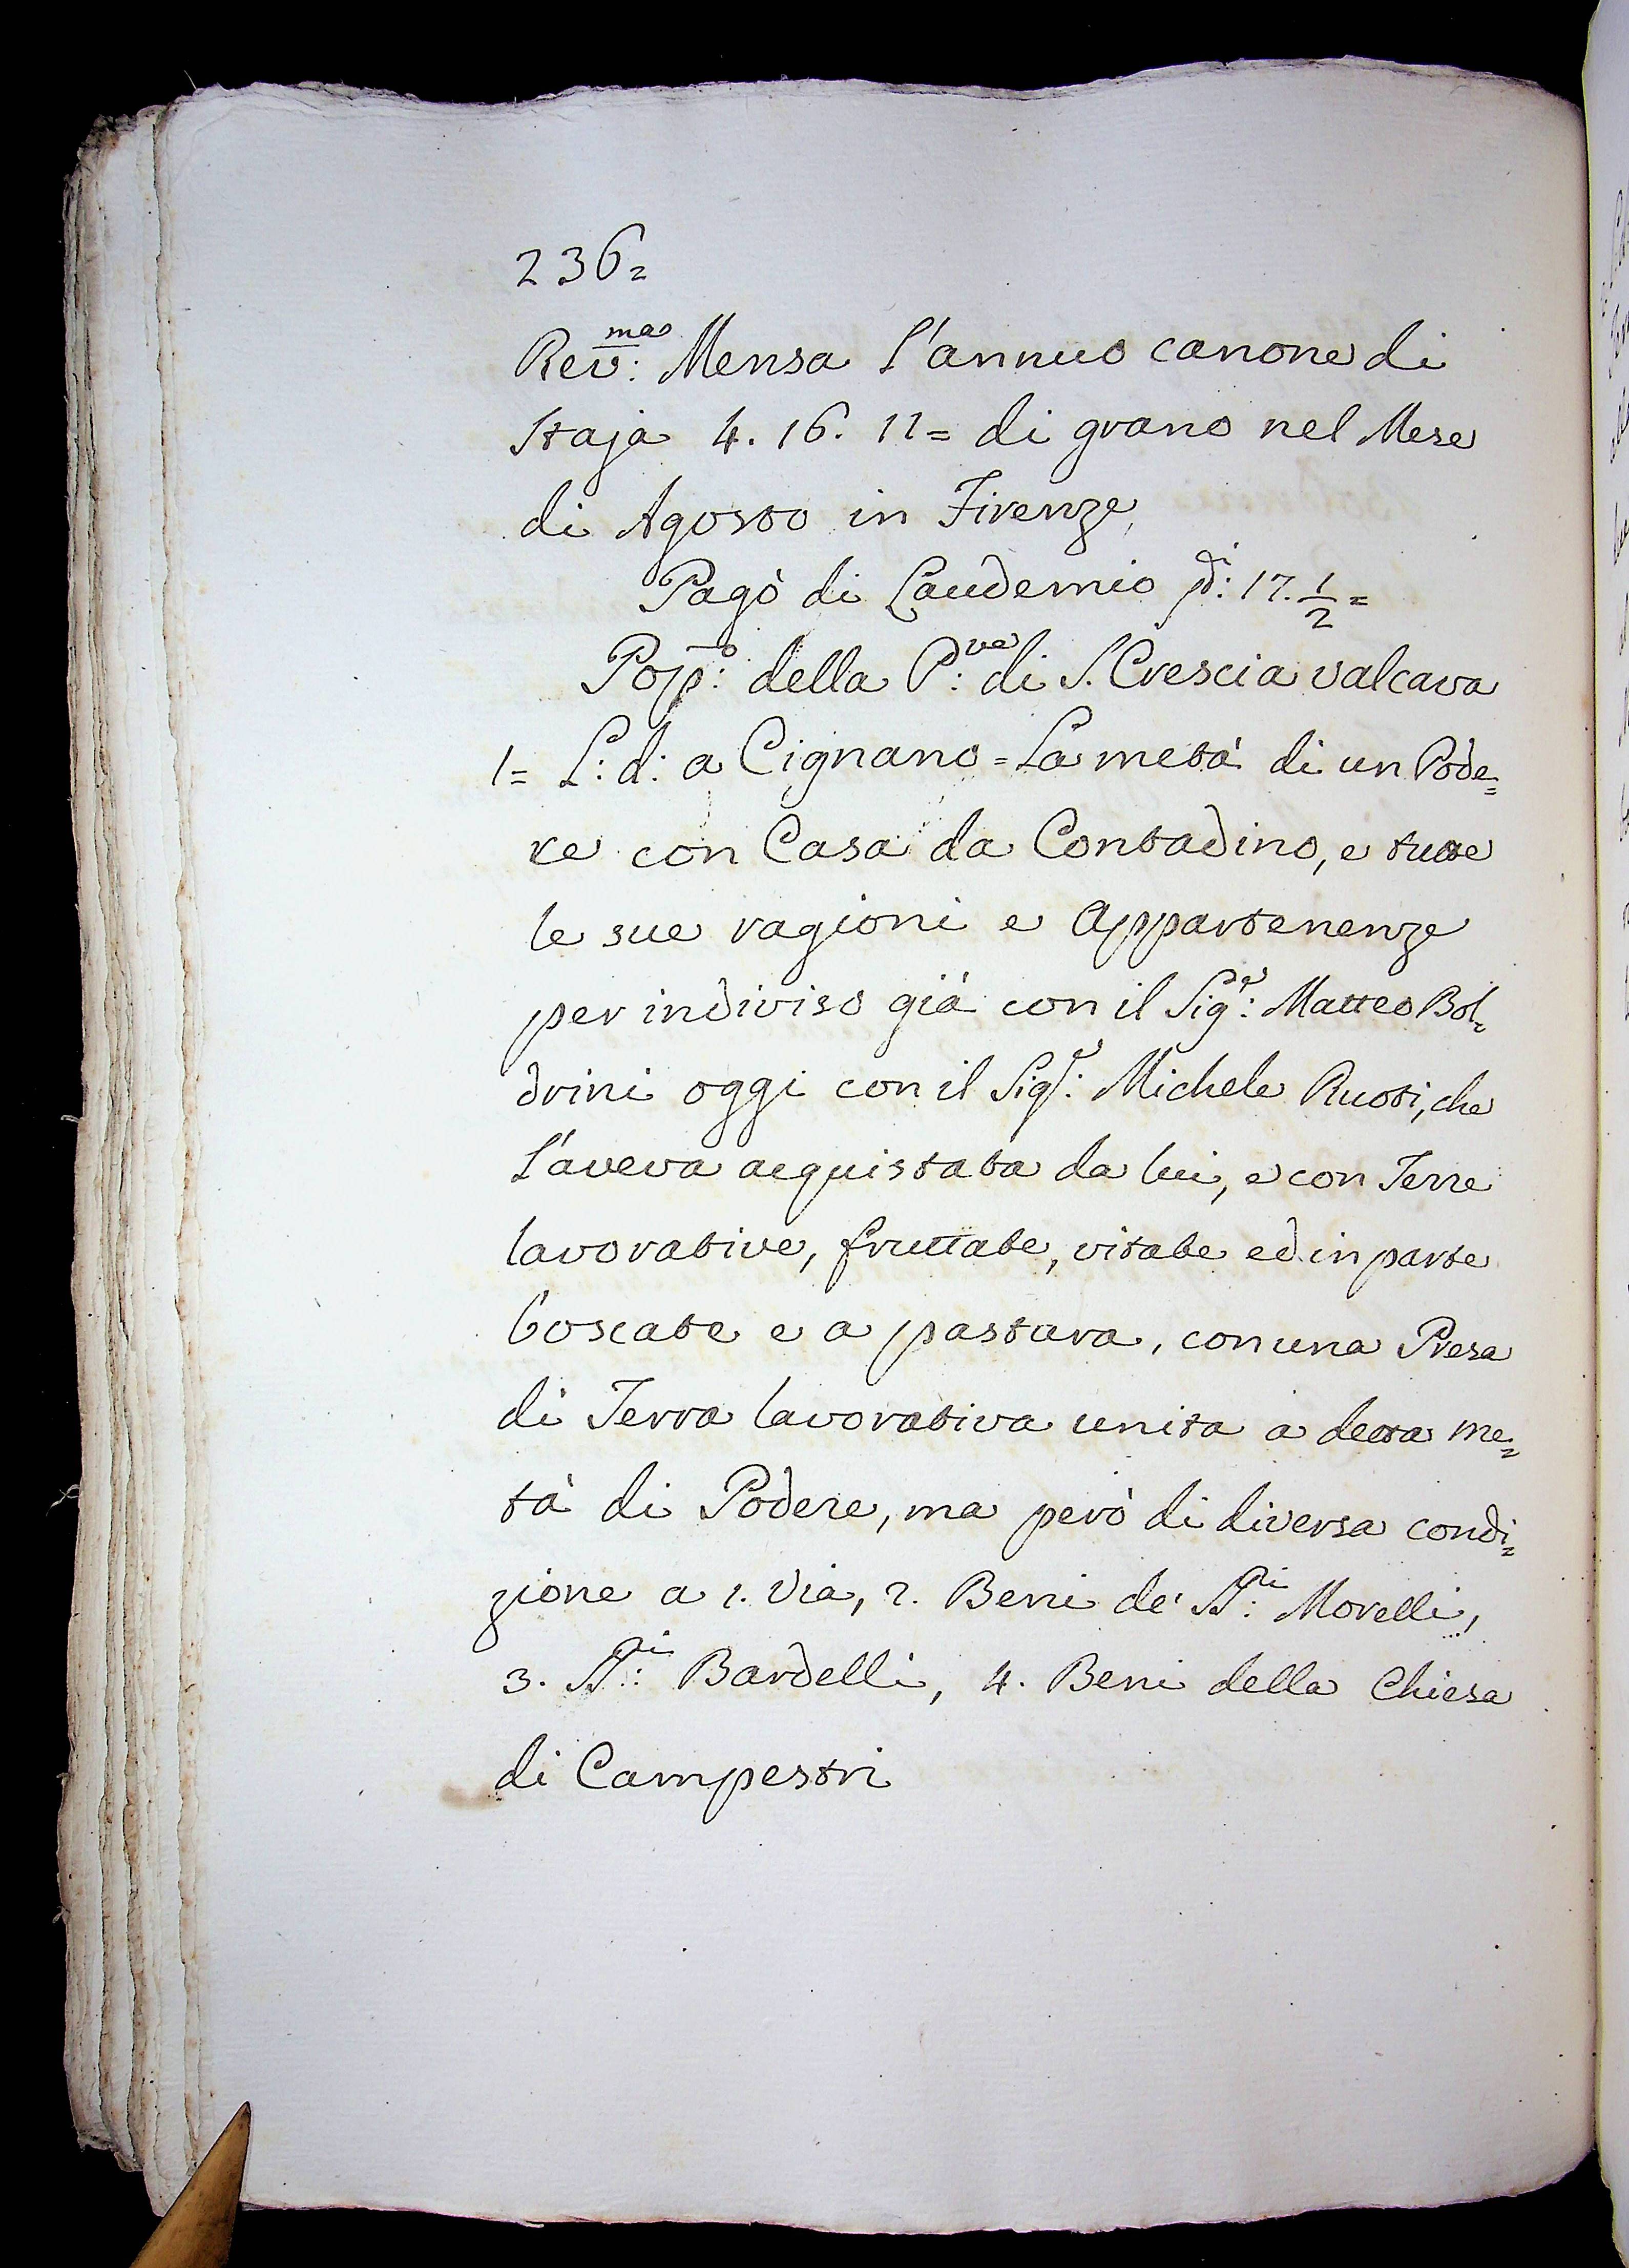 236=
Rev:ma Mensa l'annuo canone di
Staja 4. 16. 11= di grano nel Mese
di Agosto in Firenze
Pagò di Laudemio di: 17. 1/2=
Pop:o della P:ve di S. Crescia valcava
1= L: d: a Cignano = La metà di un Pode=
re con Casa da Contadino, e tutte
le sue ragioni e Appartenenze
per indiviso già con il Sig:r Matteo Bol=
drini oggi con il Sig:r Michele Ruoti, che
l'aveva acquistata da lui, e con Terre
lavorative, fruttate, vitate ed in parte
boscate e a pastura, con una Presa
di Terra lavorativa unita a detta me=
tà di Podere, ma però di diversa condi=
zione a 1. Via, 2. Beni de' SS:ri Morelli,
3. SS:ri Bardelli, 4. Beni della Chiesa
di Campestri